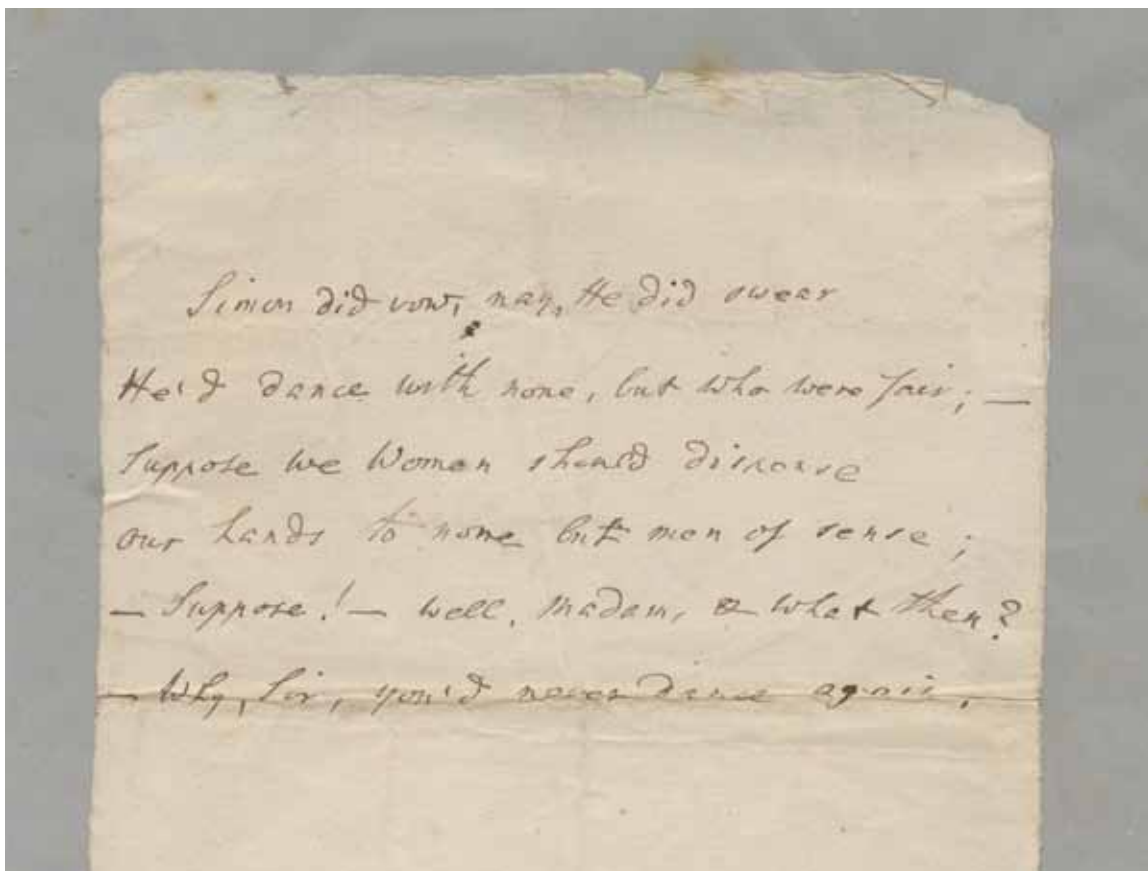 Simon did vow, nay, He did swear
He'd dance with none, but who were fair; —
Suppose we Women should dispense
our hands to none but men of sense;
— Suppose! — well, Madam, & what then?
— Why, Sir, you'd never dance again.